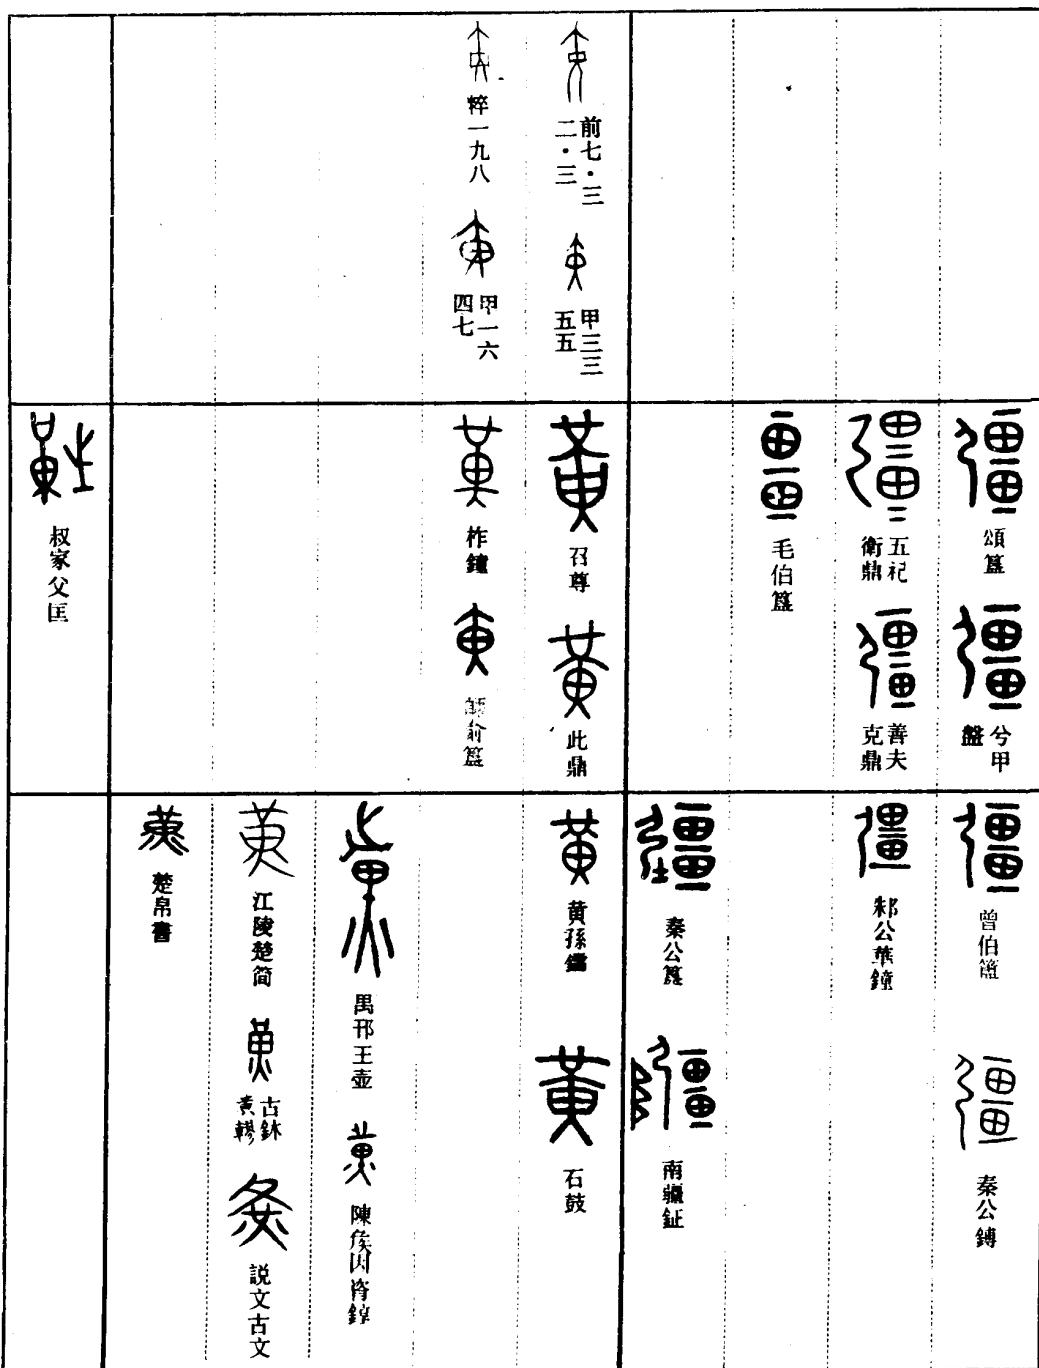 前七·三
二·三
甲三三
五五
粹一九八
甲一六
四七
頌簋
兮甲
盤
五祀
衛鼎
善夫
克鼎
毛伯簋
召尊
此鼎
柞鐘
師俞簋
叔家父匡
曾伯簠
秦公鎛
邾公華鐘
秦公簋
南疆鉦
黃孫
石鼓
禺邗王壺
陳侯因𬱖錞
江陵楚简
古鉥
黃轇
説文古文
楚帛書